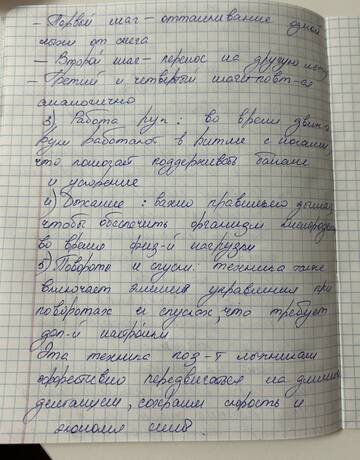 - Первый шаг - отталкивание одной
ноги от снега
- Второй шаг - перенос на другую ногу
- Третий и четвертый шаги повт-ся
аналогично
3) Работа рук: во время движ-я
руки работают в ритме с ногами,
что помогает поддерживать баланс
и ускорение
4) Дыхание: важно правильно дышать,
чтобы обеспечить организм кислородом
во время физ-й нагрузки
5) Повороты и спуски: техника также
включает элементы управления при
поворотах и спусках, что требует
доп-й
Эта техника поз-т лыжникам
эффективно передвигаться на длинные
дистанции, сохраняя скорость и
экономя силы.